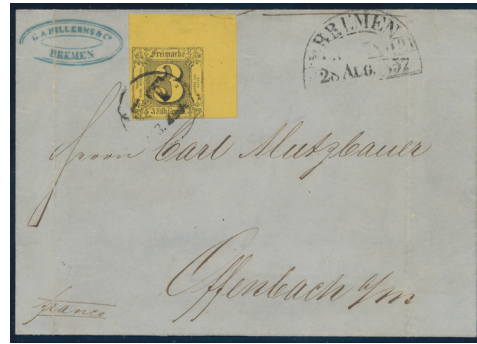 G. A. HILLERNS & Co
BREMEN
Freimarke
3
3 Silb. Grosch.
BREMEN
28 AUG. 1857
Herrn Carl Mutzbauer
Offenbach a/m
franco